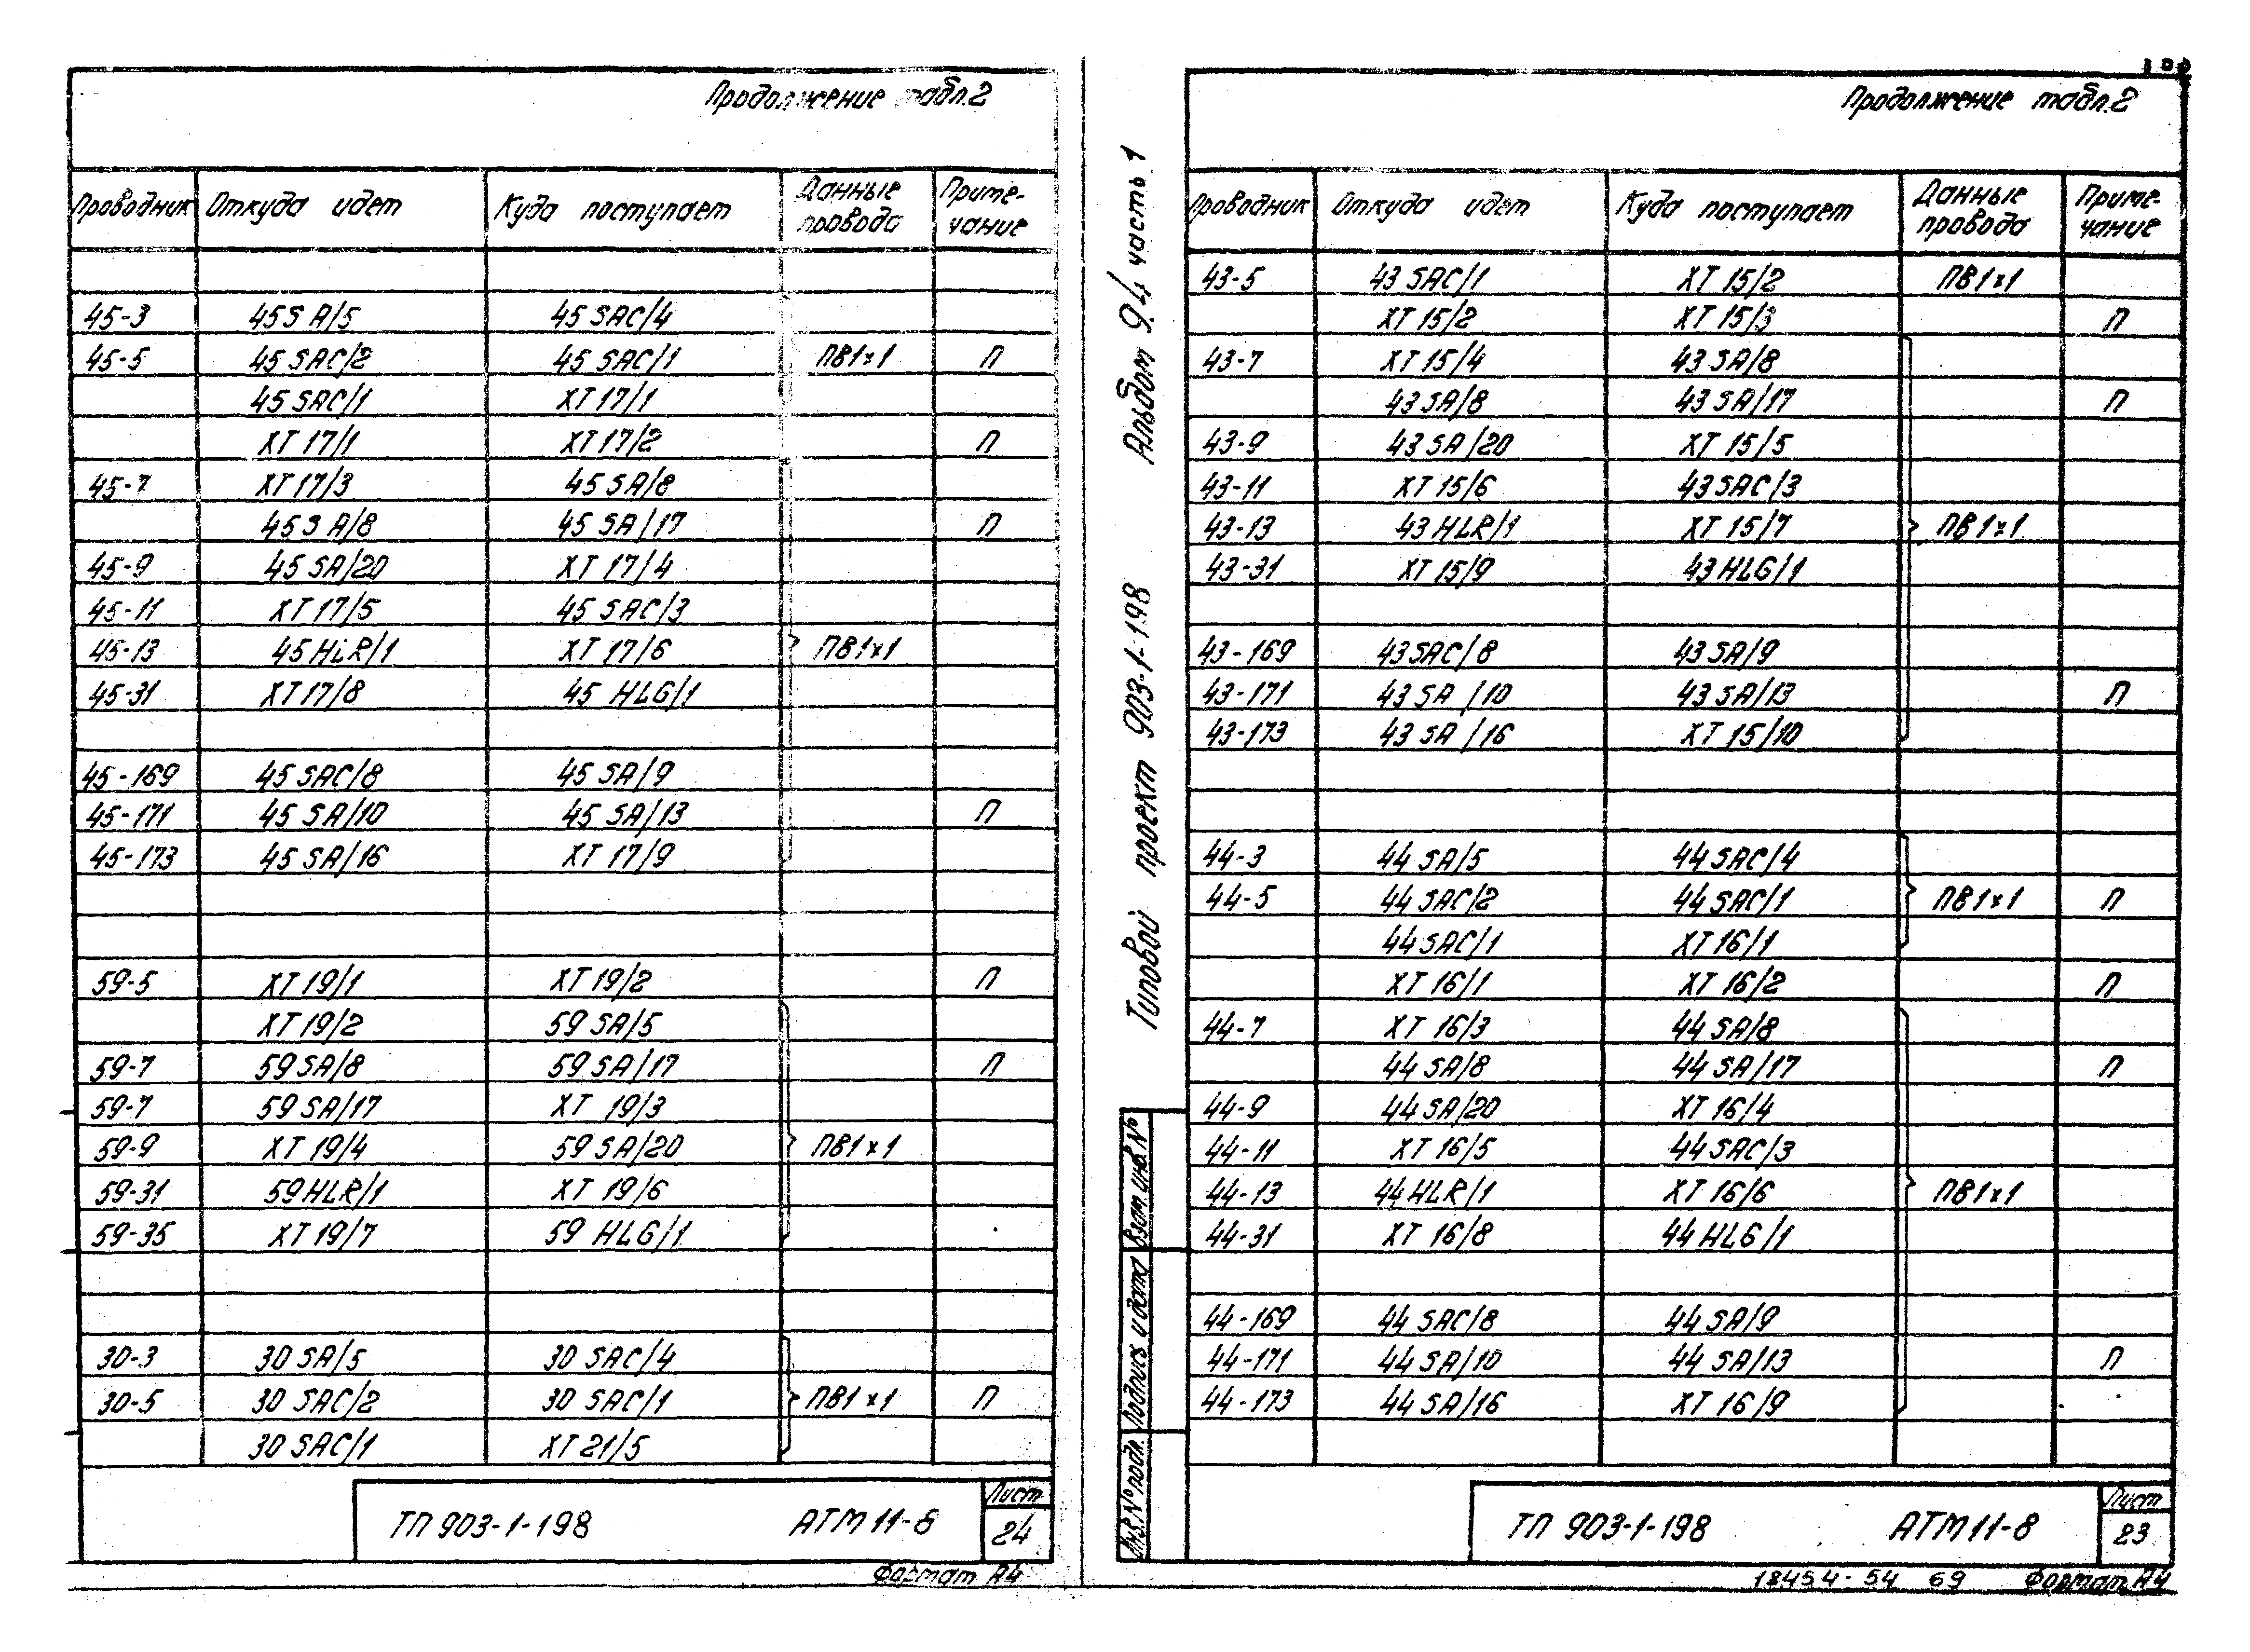 Продолжение табл.2
Проводник Откуда идет Куда поступает Данные провода Примечание
45-3 45SA/5 45SAC/4
45-5 45SAC/2 45SAC/1 ПВ1×1 П
45SAC/1 XT17/1
XT17/1 XT17/2 П
45-7 XT17/3 45SA/8
45SA/8 45SA/17 П
45-9 45SA/20 XT17/4
45-11 XT17/5 45SAC/3
45-13 45HLR/1 XT17/6 ПВ1×1
45-31 XT17/8 45HLG/1
45-169 45SAC/8 45SA/9
45-171 45SA/10 45SA/13 П
45-173 45SA/16 XT17/9
59-5 XT19/1 XT19/2 П
XT19/2 59SA/5
59-7 59SA/8 59SA/17 П
59-7 59SA/17 XT19/3
59-9 XT19/4 59SA/20 ПВ1×1
59-31 59HLR/1 XT19/6
59-35 XT19/7 59HLG/1
30-3 30SA/5 30SAC/4
30-5 30SAC/2 30SAC/1 ПВ1×1 П
30SAC/1 XT21/5
ТП 903-1-198 АТМ11-8 Лист 24
Формат А4
Альбом 9.4 часть 1
Типовой проект 903-1-198
Взам.инв.№
Подпись и дата
Инв.№подл.
Продолжение табл.2
Проводник Откуда идет Куда поступает Данные провода Примечание
43-5 43SAC/1 XT15/2 ПВ1×1
XT15/2 XT15/3 П
43-7 XT15/4 43SA/8
43SA/8 43SA/17 П
43-9 43SA/20 XT15/5
43-11 XT15/6 43SAC/3
43-13 43HLR/1 XT15/7 ПВ1×1
43-31 XT15/9 43HLG/1
43-169 43SAC/8 43SA/9
43-171 43SA/10 43SA/13 П
43-173 43SA/16 XT15/10
44-3 44SA/5 44SAC/4
44-5 44SAC/2 44SAC/1 ПВ1×1 П
44SAC/1 XT16/1
XT16/1 XT16/2 П
44-7 XT16/3 44SA/8
44SA/8 44SA/17 П
44-9 44SA/20 XT16/4
44-11 XT16/5 44SAC/3
44-13 44HLR/1 XT16/6 ПВ1×1
44-31 XT16/8 44HLG/1
44-169 44SAC/8 44SA/9
44-171 44SA/10 44SA/13 П
44-173 44SA/16 XT16/9
ТП 903-1-198 АТМ11-8 Лист 23
18454-54 69 Формат А4